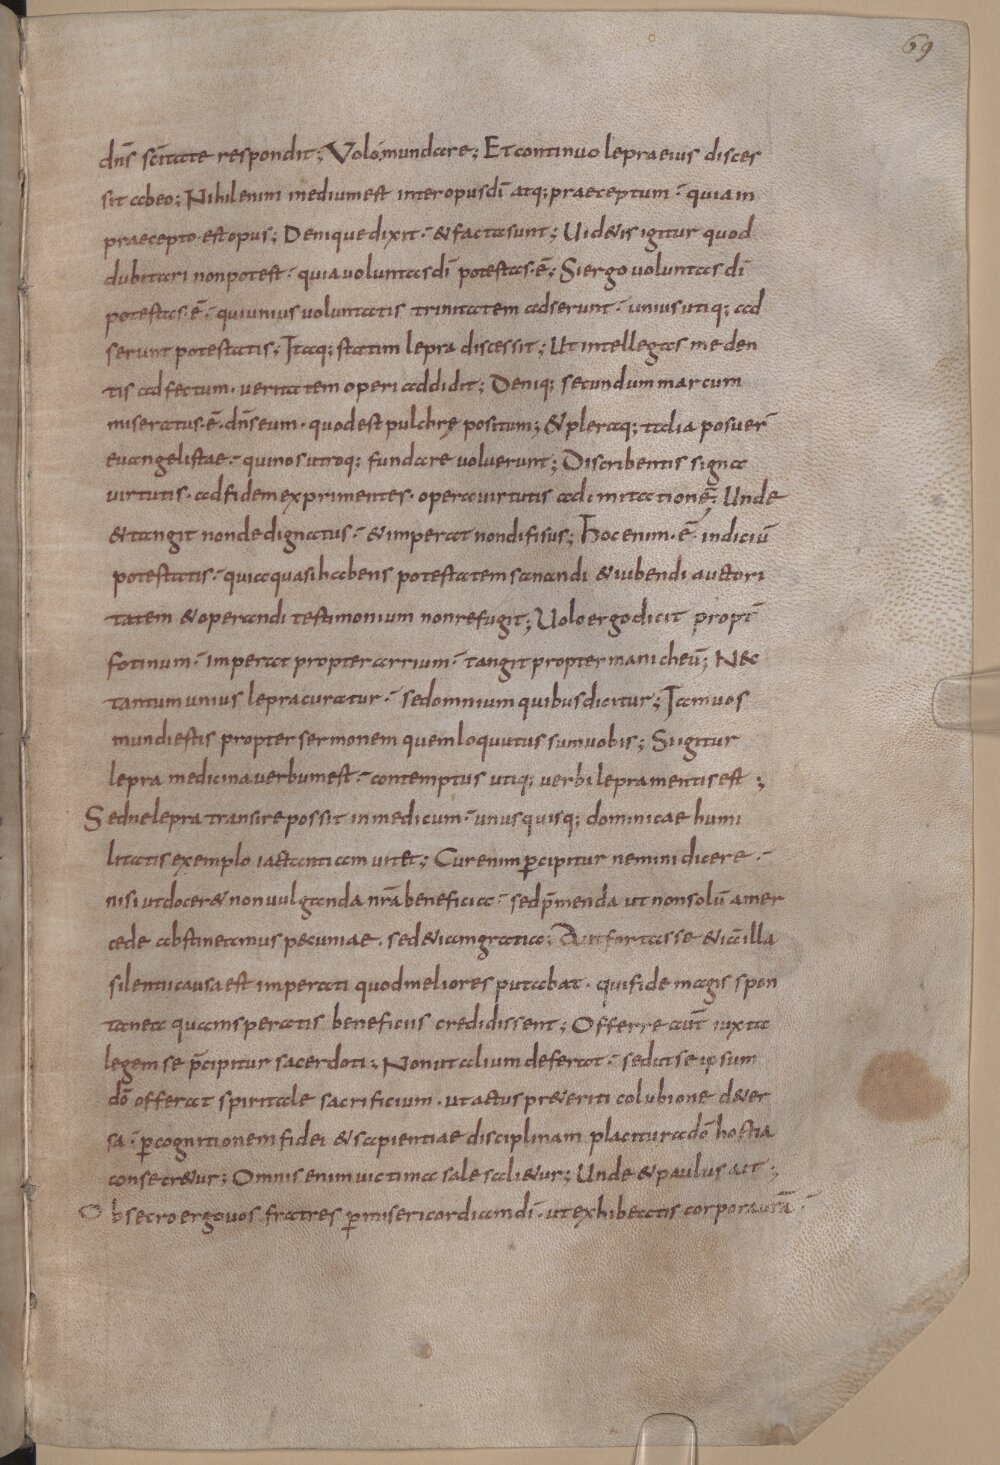 69
dn̄s sc̄itate respondit; Volo, mundare; Et continuo lepra eius disces
sit ab eo; Nihil enim medium est inter opus dī atq; praeceptum · quia in
praecepto est opus; Denique dixit · & facta sunt; Uid&is igitur quod
dubitari non potest · quia voluntas dī potestas · ē; Si ergo voluntas dī
potestas · ē · qui unius voluntatis trinitatem adserunt · unius utiq; ad
serunt potestatis; Itaq; statim lepra discessit; Ut intellegas meden
tis adfectum · veritatem operi addidit; Deniq; secundum marcum
miseratus · ē · dn̄s eum · quod est pulchrę positum; & pleraq; talia posuer̄
evangelistae · qui nos utroq; fundare voluerunt; Discribentis signa
virtutis · ad fidem exprimentes · opera virtutis ad imitationē; Unde
& tangit non dedignatus · & imperat non difisus; Hoc enim · ē · indiciū
potestatis · quia quasi habens potestatem sanandi & iubendi auctori
tatem & operandi testimonium non refugit; Uolo ergo dicit propt̄
fotinum · imperat propter arrium · tangit propter manicheū; Nec
tantum unius lepra curatur · sed omnium quibus dicitur; Iam vos
mundi estis propter sermonem quem loquutus sum vobis; Si igitur
lepra medicina verbum est · contemptus utiq; verbi lepra mentis est;
Sed ne lepra transire possit in medicum · unusquisq; dominicae humi
litatis exemplo iactantiam vitet; Cur enim p̄cipitur nemini dicere ·
nisi ut docer& non vulganda nr̄a beneficia · sed p̄menda ut non solū a mer
cede abstineamus pecuniae · sed & iam gratia; Aut fortasse & iā illa
silentii causa est imperati quod meliores putabat · qui fide magis spon
tanea quam speratis beneficiis credidissent; Offerre aut̄ iuxta
legem se p̄cipitur sacerdoti; Non ut alium deferat · sed ut se ipsum
dō offerat spiritale sacrificium · ut actus pr&eriti colubione d&er
sa · p̱ cognitionem fidei & sapientiae disciplinam placitura dō hostia
consecr&ur; Omnis enim victima sale sali&ur; Unde & paulus ait;
Obsecro ergo vos fratres p̱ misericordiam dī · ut exhibeatis corpora vr̄a ·